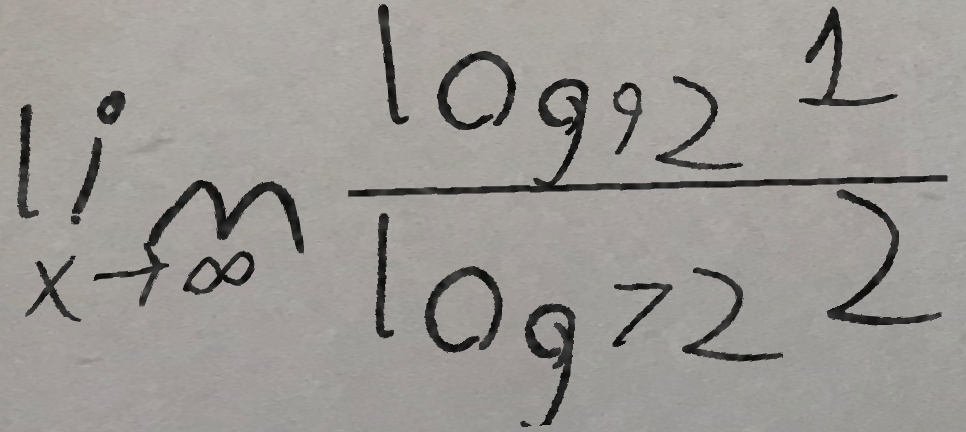 \lim_{x \to \infty} \frac{\log_{92} 1}{\log_{72} 2}